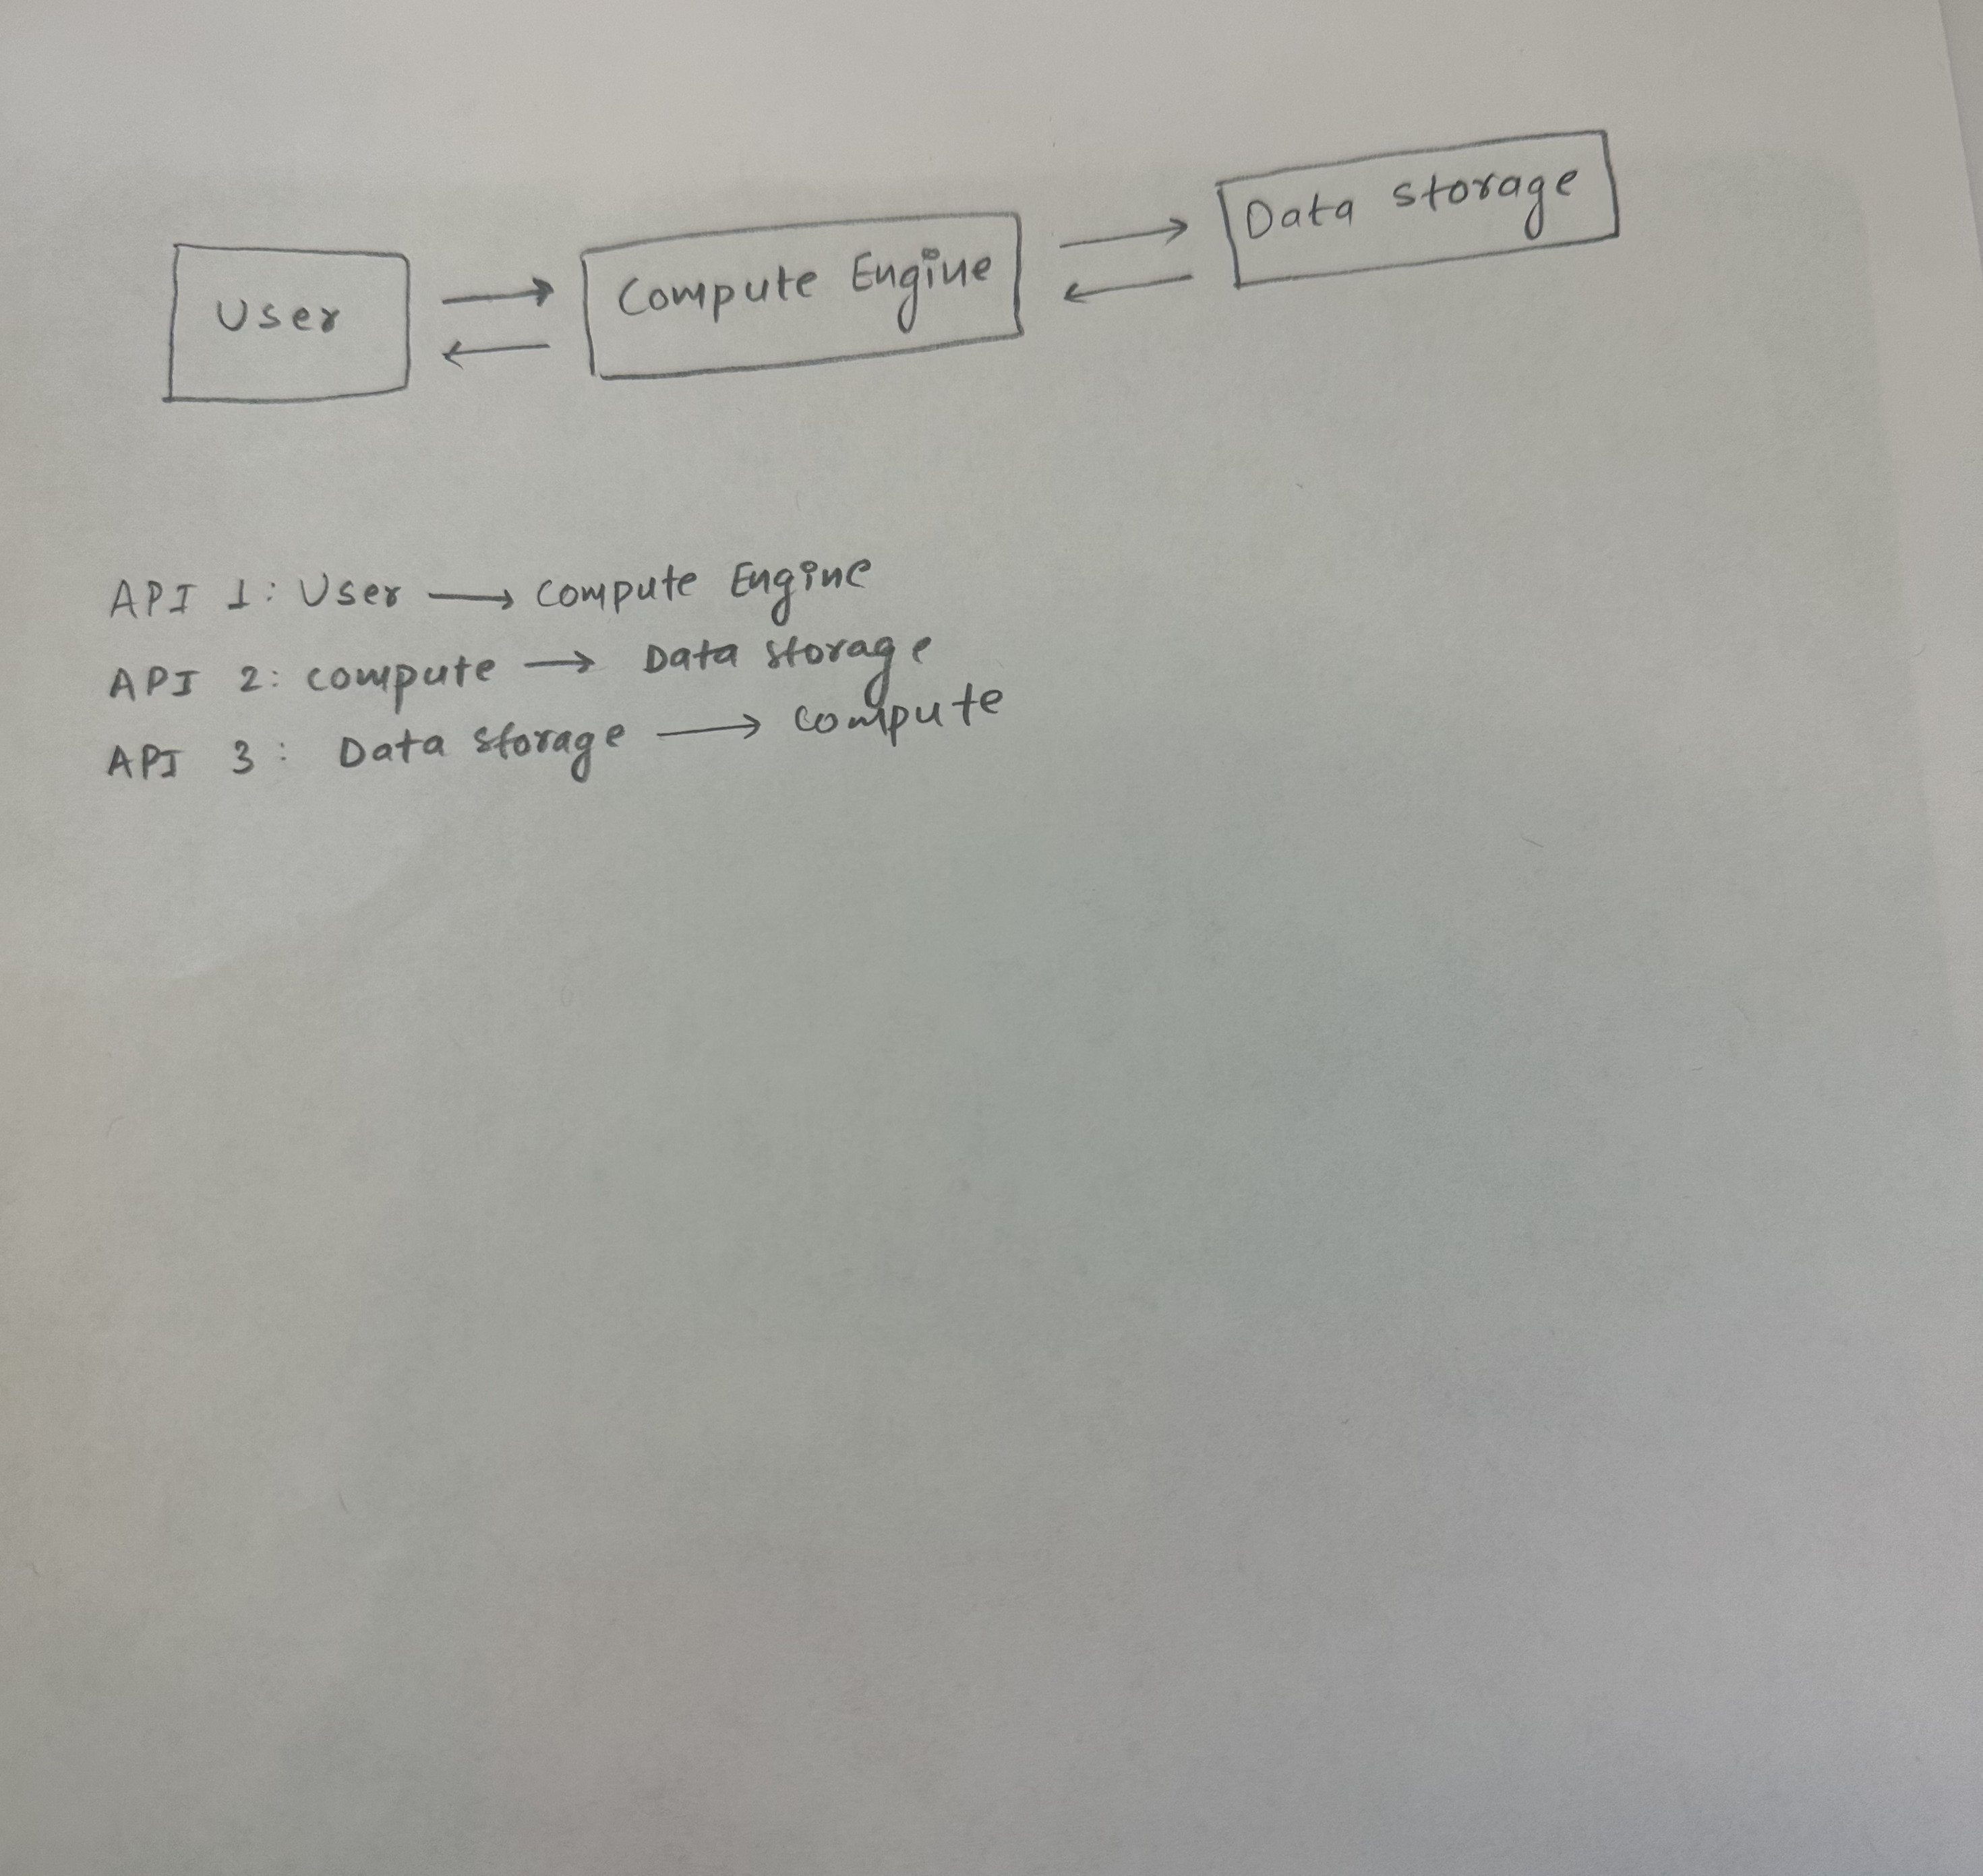 User
Compute Engine
Data storage
API 1: User → compute Engine
API 2: compute → Data storage
API 3: Data storage → compute